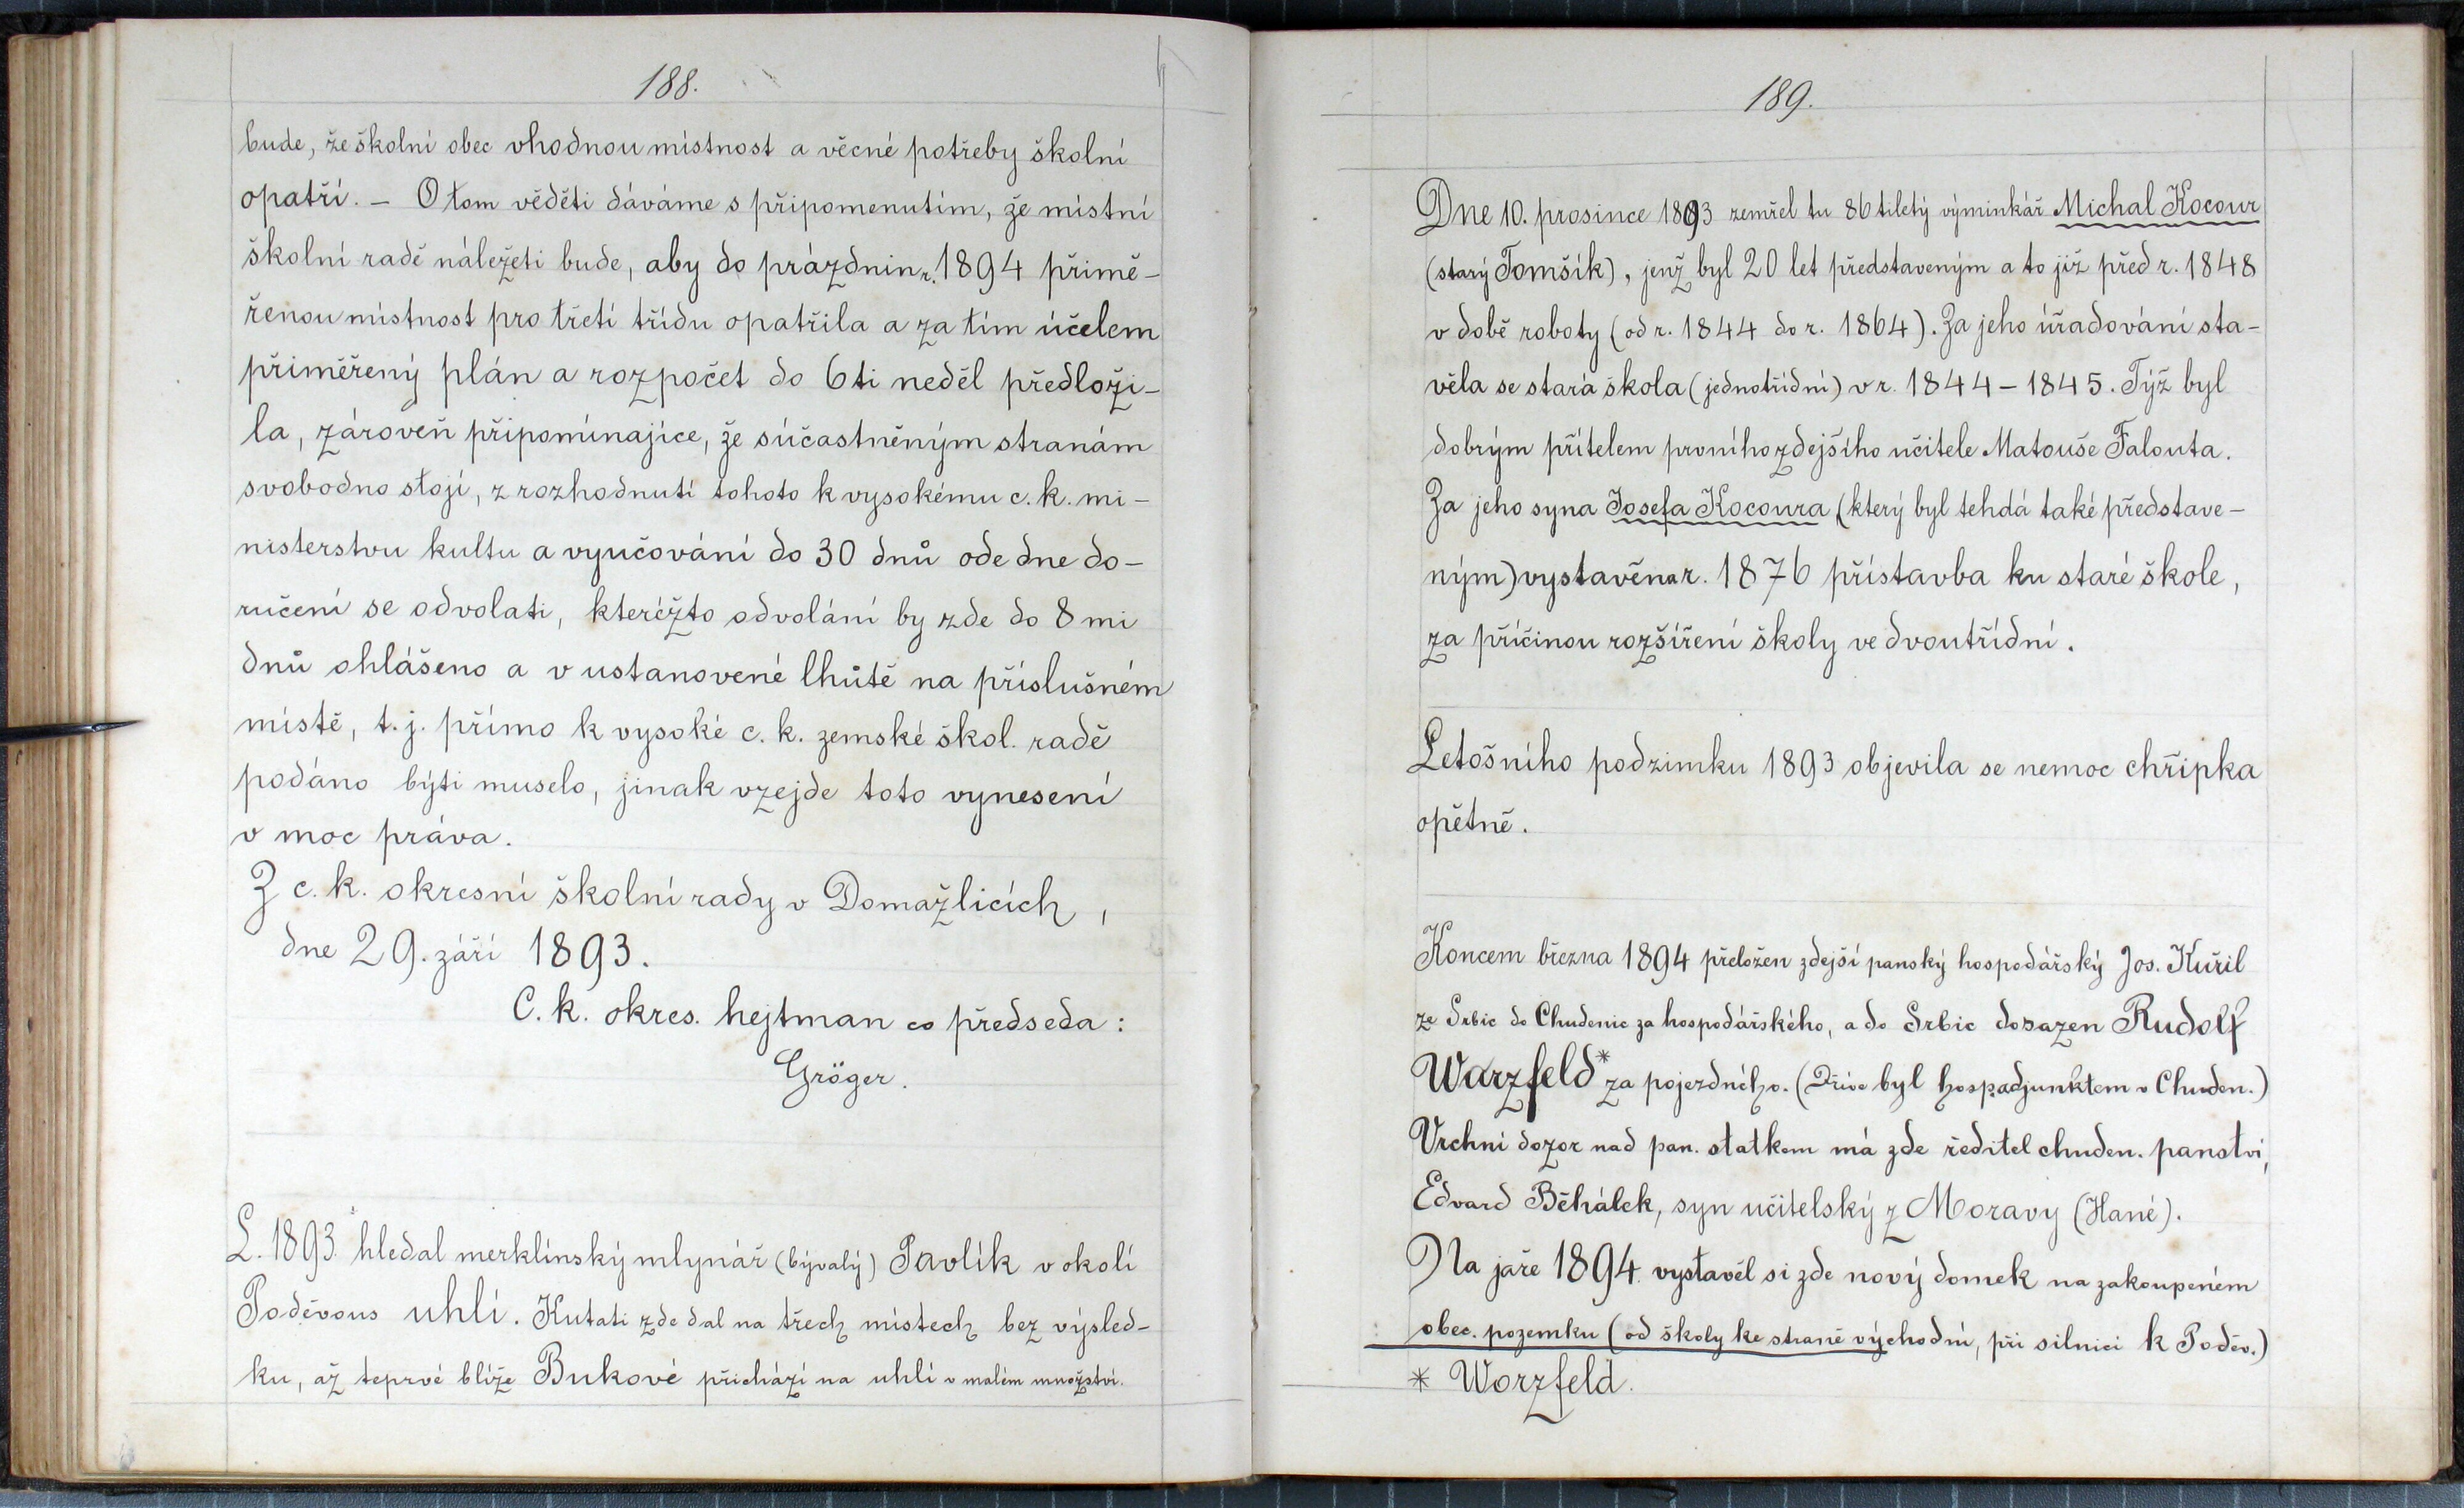 188.
bude, že školní obec vhodnou místnost a věcné potřeby školní
opatří. – O tom věděti dáváme s připomenutím, že místní
školní radě náležeti bude, aby do prázdnin r. 1894 přimě-
řenou místnost pro třetí třídu opatřila a za tím účelem
přiměřený plán a rozpočet do 6ti neděl předloži-
la, zároveň připomínajíce, že súčastněným stranám
svobodno stojí, z rozhodnutí tohoto k vysokému c. k. mi-
nisterstvu kultu a vyučování do 30 dnů ode dne do-
ručení se odvolati, kteréžto odvolání by zde do 8 mi
dnů ohlášeno a v ustanovené lhůtě na příslušném
místě, t. j. přímo k vysoké c. k. zemské škol. radě
podáno býti muselo, jinak vzejde toto vynesení
v moc práva.
Z c. k. okresní školní rady v Domažlicích,
dne 29. září 1893.
C. k. okres. hejtman co předseda:
Gröger.
L. 1893 hledal merklínský mlynář (bývalý) Pavlík v okolí
Poděvous uhlí. Kutati zde dal na třech místech bez výsled-
ku, až teprvé blíže Bukové přichází na uhlí v malém množství.
189.
Dne 10. prosince 1893 zemřel tu 86tiletý výminkář Michal Kocour
(starý Tomšík), jenž byl 20 let představeným a to již před r. 1848
v době roboty (od r. 1844 do r. 1864). Za jeho úřadování sta-
věla se stará škola (jednotřídní) v r. 1844 – 1845. Týž byl
dobrým přítelem prvního zdejšího učitele Matouše Falouta.
Za jeho syna Josefa Kocoura (který byl tehdá také představe-
ným) vystavěna r. 1876 přístavba ku staré škole,
za příčinou rozšíření školy ve dvoutřídní.
Letošního podzimku 1893 objevila se nemoc chřipka
opětně.
Koncem března 1894 přeložen zdejší panský hospodářský Jos. Kuřil
ze Srbic do Chudenic za hospodářského, a do Srbic dosazen Rudolf
Warzfeld* za pojezdného. (Dříve byl hosp. adjunktem v Chuden.)
Vrchní dozor nad pan. statkem má zde ředitel chuden. panství,
Edvard Běhálek, syn učitelský z Moravy (Hané).
Na jaře 1894 vystavěl si zde nový domek na zakoupeném
obec. pozemku (od školy ke straně východní, při silnici k Poděv.)
* Worzfeld.